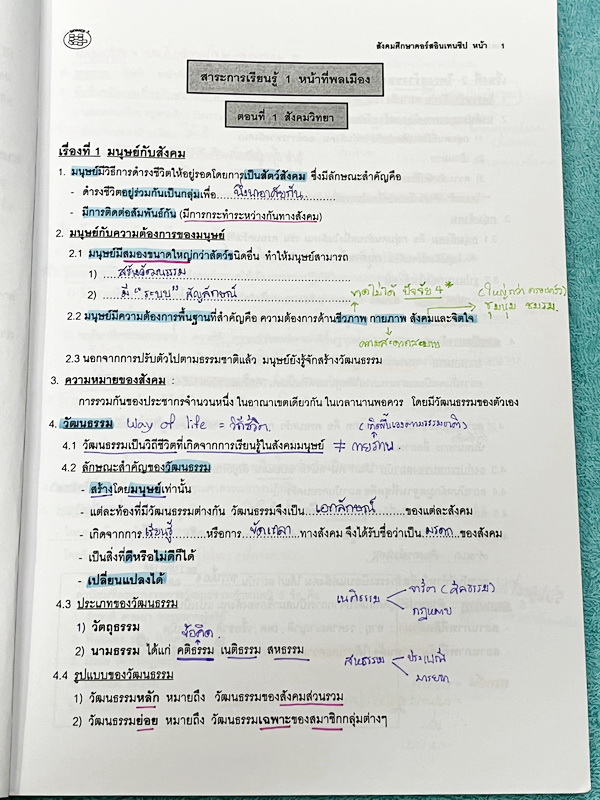 สังคมศึกษาคอร์สอินเทนซีป หน้า 1
สาระการเรียนรู้ 1 หน้าที่พลเมือง
ตอนที่ 1 สังคมวิทยา
เรื่องที่ 1 มนุษย์กับสังคม
1. มนุษย์มีวิธีการดำรงชีวิตให้อยู่รอดโดยการเป็นสัตว์สังคม ซึ่งมีลักษณะสำคัญคือ
- ดำรงชีวิตอยู่ร่วมกันเป็นกลุ่มเพื่อ พึ่งพาอาศัยกัน
- มีการติดต่อสัมพันธ์กัน (มีการกระทำระหว่างกันทางสังคม)
2. มนุษย์กับความต้องการของมนุษย์
2.1 มนุษย์มีสมองขนาดใหญ่กว่าสัตว์ชนิดอื่น ทำให้มนุษย์สามารถ
1) สร้างวัฒนธรรม
2) มี "ระบบ" สัญลักษณ์
ขาดไม่ได้ ปัจจัย 4*
(ใหญ่กว่า ครอบครัว)
ชุมนุม ชมรม.
2.2 มนุษย์มีความต้องการพื้นฐานที่สำคัญคือ ความต้องการด้านชีวภาพ กายภาพ สังคมและจิตใจ
ความสะดวกสบาย
2.3 นอกจากการปรับตัวไปตามธรรมชาติแล้ว มนุษย์ยังรู้จักสร้างวัฒนธรรม
3. ความหมายของสังคม :
การรวมกันของประชากรจำนวนหนึ่ง ในอาณาเขตเดียวกัน ในเวลานานพอควร โดยมีวัฒนธรรมของตัวเอง
4. วัฒนธรรม Way of life = วิถีชีวิต. (เกิดขึ้นเองตามธรรมชาติ)
4.1 วัฒนธรรมเป็นวิถีชีวิตที่เกิดจากการเรียนรู้ในสังคมมนุษย์ ≠
4.2 ลักษณะสำคัญของวัฒนธรรม
- สร้างโดยมนุษย์เท่านั้น
- แต่ละท้องที่มีวัฒนธรรมต่างกัน วัฒนธรรมจึงเป็น เอกลักษณ์ ของแต่ละสังคม
- เกิดจากการ เรียนรู้ หรือการ ขัดเกลา ทางสังคม จึงได้รับชื่อว่าเป็น มรดก ของสังคม
- เป็นสิ่งที่ดีหรือไม่ดีก็ได้
- เปลี่ยนแปลงได้
4.3 ประเภทของวัฒนธรรม
เนติธรรม จารีต (ศีลธรรม)
กฎหมาย
1) วัตถุธรรม
ข้อคิด.
2) นามธรรม ได้แก่ คติธรรม เนติธรรม สหธรรม
สหธรรม ประเพณี
มารยาท
4.4 รูปแบบของวัฒนธรรม
1) วัฒนธรรมหลัก หมายถึง วัฒนธรรมของสังคมส่วนรวม
2) วัฒนธรรมย่อย หมายถึง วัฒนธรรมเฉพาะของสมาชิกกลุ่มต่างๆ